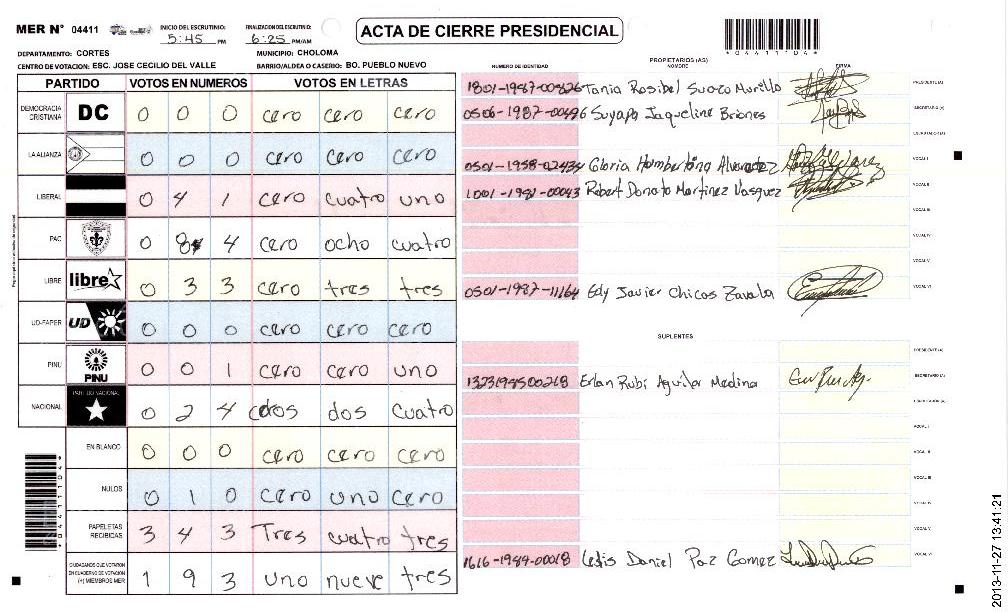 MER N° 04411
INICIO DEL ESCRUTINIO: 5:45 PM
FINALIZACION DEL ESCRUTINIO: 6:25 PM/AM
ACTA DE CIERRE PRESIDENCIAL
*04411104*
DEPARTAMENTO: CORTES
MUNICIPIO: CHOLOMA
CENTRO DE VOTACION: ESC. JOSE CECILIO DEL VALLE
BARRIO/ALDEA O CASERIO: BO. PUEBLO NUEVO
PARTIDO VOTOS EN NUMEROS VOTOS EN LETRAS
DEMOCRACIA CRISTIANA DC 0 0 0 cero cero cero
LA ALIANZA 0 0 0 cero cero cero
LIBERAL 0 4 1 cero cuatro uno
PAC 0 8 4 cero ocho cuatro
LIBRE libre 0 3 3 cero tres tres
UD-FAPER UD 0 0 0 cero cero cero
PINU PINU 0 0 1 cero cero uno
NACIONAL PARTIDO NACIONAL 0 2 4 dos dos cuatro
EN BLANCO 0 0 0 cero cero cero
NULOS 0 1 0 cero uno cero
PAPELETAS RECIBIDAS 3 4 3 Tres cuatro tres
CIUDADANOS QUE VOTARON EN CUADERNO DE VOTACION (+) MIEMBROS MER 1 9 3 uno nueve tres
NUMERO DE IDENTIDAD
PROPIETARIOS (AS)
NOMBRE
FIRMA
1801-1987-00826 Tania Rosibel Suaco Murillo PRESIDENTE(A)
0506-1987-00496 Suyapa Jaqueline Briones SECRETARIO(A)
ESCRUTADOR(A)
0501-1958-02434 Gloria Humbertina Alvarez VOCAL I
1001-1981-00043 Robert Donato Martinez Vasquez VOCAL II
VOCAL III
VOCAL IV
VOCAL V
0501-1987-11164 Edy Javier Chicas Zavala VOCAL VI
SUPLENTES
PRESIDENTE(A)
1323198500218 Erlan Rubi Aguilar Medina SECRETARIO(A)
ESCRUTADOR(A)
VOCAL I
VOCAL II
VOCAL III
VOCAL IV
VOCAL V
1616-1984-00018 Leris Daniel Paz Gomez VOCAL VI
2013-11-27 13:41:21